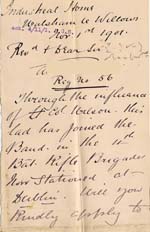 Industrial Home
Walsham le Willows
Nov. 1st 1901.
Revd & Dear Sir
Reg No 56
Through the influence
of Col Wilson. This
lad has joined the
Band. in the
Bat. Rifle Brigade
Now Stationed at
Dublin. Will you
Kindly apply to